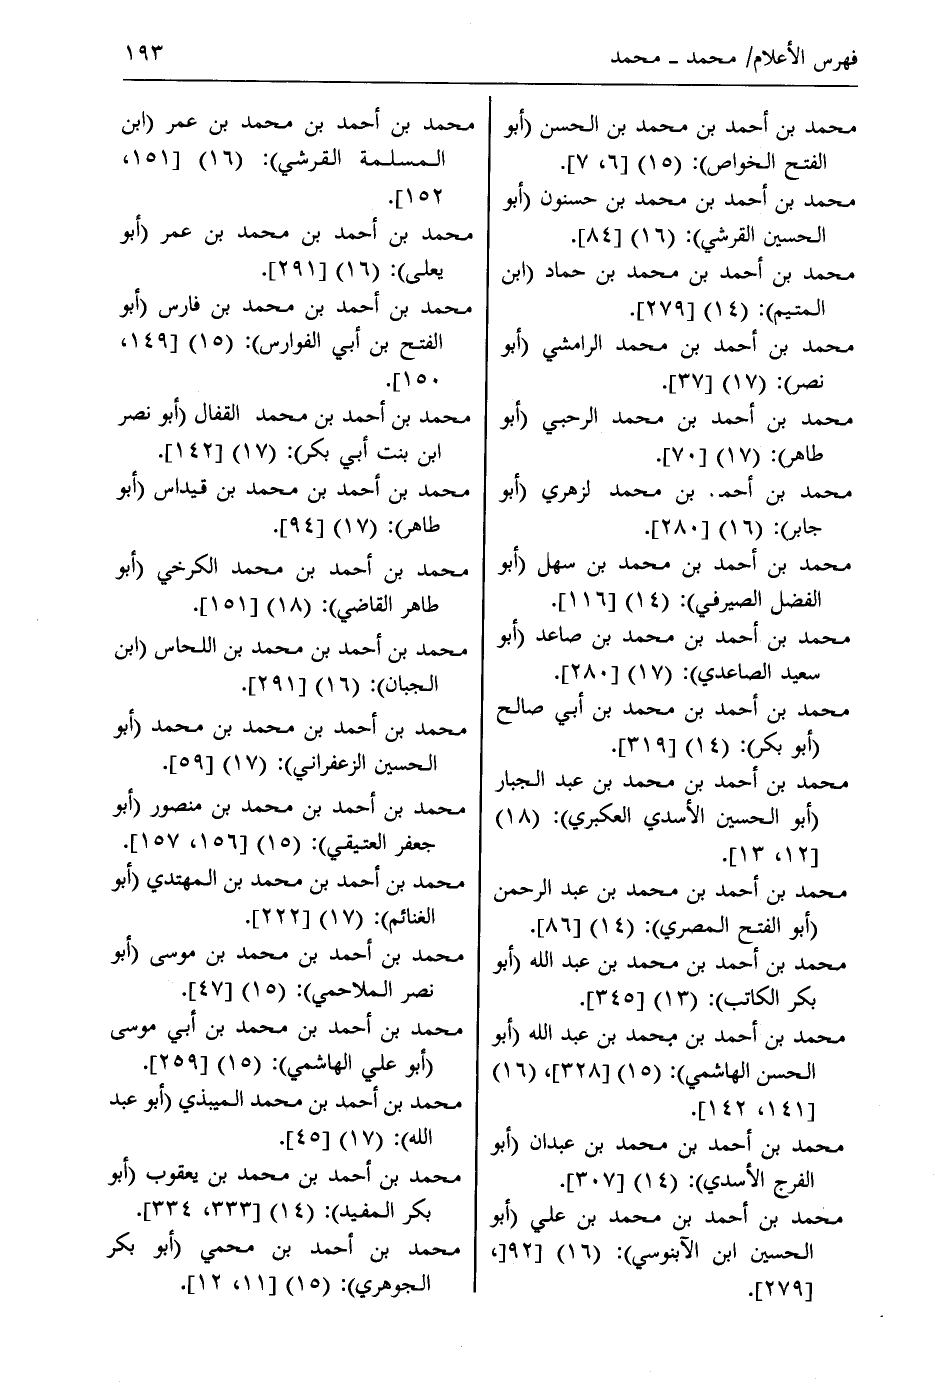 فهرس الأعلام/ محمد ـ محمد
١٩٣
محمد بن أحمد بن محمد بن الحسن (أبو
الفتح الخواص): (١٥) [٦، ٧].
محمد بن أحمد بن محمد بن حسنون (أبو
الحسين القرشي): (١٦) [٨٤].
محمد بن أحمد بن محمد بن حماد (ابن
المتيم): (١٤) [٢٧٩].
محمد بن أحمد بن محمد الرامشي (أبو
نصر): (١٧) [٣٧].
محمد بن أحمد بن محمد الرحبي (أبو
طاهر): (١٧) [٧٠].
محمد بن أحم. بن محمد لزهري (أبو
جابر): (١٦) [٢٨٠].
محمد بن أحمد بن محمد بن سهل (أبو
الفضل الصيرفي): (١٤) [١١٦].
محمد بن أحمد بن محمد بن صاعد (أبو
سعيد الصاعدي): (١٧) [٢٨٠].
محمد بن أحمد بن محمد بن أبي صالح
(أبو بكر): (١٤) [٣١٩].
محمد بن أحمد بن محمد بن عبد الجبار
(أبو الحسين الأسدي العكبري): (١٨)
[١٢، ١٣].
محمد بن أحمد بن محمد بن عبد الرحمن
(أبو الفتح المصري): (١٤) [٨٦].
محمد بن أحمد بن محمد بن عبد الله (أبو
بكر الكاتب): (١٣) [٣٤٥].
محمد بن أحمد بن محمد بن عبد الله (أبو
الحسن الهاشمي): (١٥) [٣٢٨]، (١٦)
[١٤١، ١٤٢].
محمد بن أحمد بن محمد بن عبدان (أبو
الفرج الأسدي): (١٤) [٣٠٧].
محمد بن أحمد بن محمد بن علي (أبو
الحسين ابن الآبنوسي): (١٦) [٩٢[،
[٢٧٩].
محمد بن أحمد بن محمد بن عمر (ابن
المسلمة القرشي): (١٦) [١٥١،
١٥٢].
محمد بن أحمد بن محمد بن عمر (أبو
يعلى): (١٦) [٢٩١].
محمد بن أحمد بن محمد بن فارس (أبو
الفتح بن أبي الفوارس): (١٥) [١٤٩،
١٥٠].
محمد بن أحمد بن محمد القفال (أبو نصر
ابن بنت أبي بكر): (١٧) [١٤٢].
محمد بن أحمد بن محمد بن قيداس (أبو
طاهر): (١٧) [٩٤].
محمد بن أحمد بن محمد الكرخي (أبو
طاهر القاضي): (١٨) [١٥١].
محمد بن أحمد بن محمد بن اللحاس (ابن
الجبان): (١٦) [٢٩١].
محمد بن أحمد بن محمد بن محمد (أبو
الحسين الزعفراني): (١٧) [٥٩].
محمد بن أحمد بن محمد بن منصور (أبو
جعفر العتيقي): (١٥) [١٥٦، ١٥٧].
محمد بن أحمد بن محمد بن المهتدي (أبو
الغنائم): (١٧) [٢٢٢].
محمد بن أحمد بن محمد بن موسى (أبو
نصر الملاحمي): (١٥) [٤٧].
محمد بن أحمد بن محمد بن أبي موسى
(أبو علي الهاشمي): (١٥) [٢٥٩].
محمد بن أحمد بن محمد الميبذي (أبو عبد
الله): (١٧) [٤٥].
محمد بن أحمد بن محمد بن يعقوب (أبو
بكر المفيد): (١٤) [٣٣٣، ٣٣٤].
محمد بن أحمد بن محمي (أبو بكر
الجوهري): (١٥) [١١، ١٢].